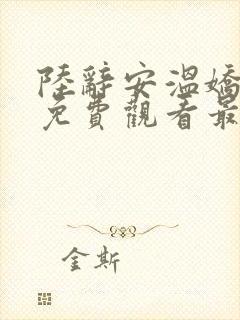 陸辭安溫嬌
免費觀看最
金斯